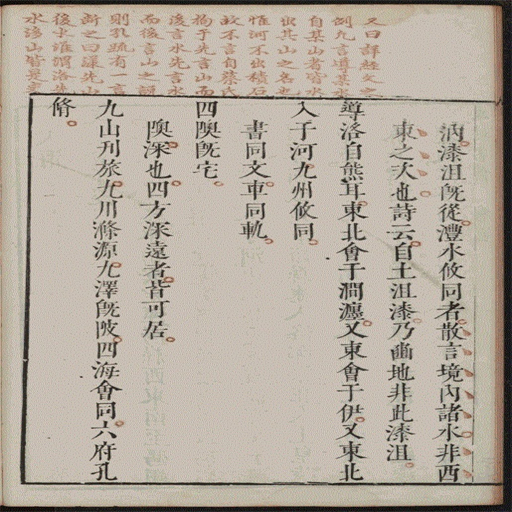 又曰詳經文之
例凡言導某水
自某山者皆水
出其山之名也
惟河不出積石
故不言自蔡氏
拘于先言山而
後言水先言水
而後言山之説
則孔疏有一言
斷之曰
後史
水
汭漆沮旣從灃水攸同者散言境內諸水非西
東之次也詩云自土沮漆乃豳地非此漆沮
導洛自熊耳東北會于澗瀍又東會于伊又東北
入于河九州攸同
書同文車同軌
四隩旣宅
隩深也四方深遠者皆可居
九山刋旅九川滌源九澤旣陂四海會同六府孔
脩